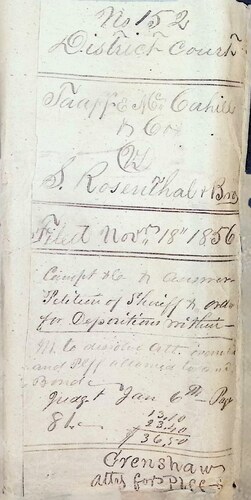 No 152
District Court
Taaffe Mc Cahill
& Co
vs
S. Rosenthal & Bro
Filed Novr 18th 1856
Compt &c & answer
Petition of Sheriff & order
for Depositions within
M. to dissolve att.
and Plff allowed to
Bond
Judgt Jan 6th Page
81
13,10
23.40
$36,50
Crenshaw
atty for Plff